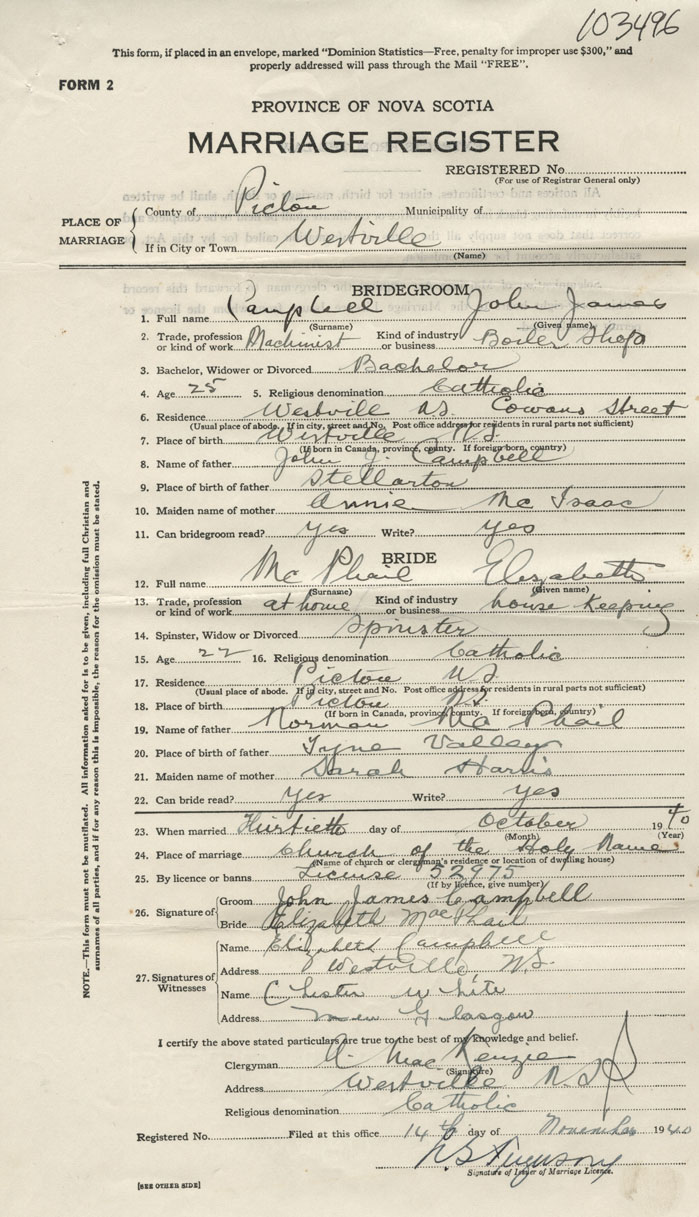 103496
This form, if placed in an envelope, marked "Dominion Statistics—Free, penalty for improper use $300," and
properly addressed will pass through the Mail "FREE".
FORM 2
PROVINCE OF NOVA SCOTIA
MARRIAGE REGISTER
REGISTERED No.
(For use of Registrar General only)
PLACE OF MARRIAGE
County of Pictou Municipality of
If in City or Town Westville
(Name)
BRIDEGROOM
1. Full name Campbell John James
(Surname) (Given name)
2. Trade, profession or kind of work Machinist Kind of industry or business Boiler Shop
3. Bachelor, Widower or Divorced Bachelor
4. Age 25 5. Religious denomination Catholic
6. Residence Westville NS. Cowans Street
(Usual place of abode. If in city, street and No. Post office address for residents in rural parts not sufficient)
7. Place of birth Westville NS
(If born in Canada, province, county. If foreign born, country)
8. Name of father John J. Campbell
9. Place of birth of father Stellarton
10. Maiden name of mother Annie Mc Isaac
11. Can bridegroom read? yes Write? yes
BRIDE
12. Full name Mc Phail Elizabeth
(Surname) (Given name)
13. Trade, profession or kind of work at home Kind of industry or business house Keeping
14. Spinster, Widow or Divorced Spinster
15. Age 22 16. Religious denomination Catholic
17. Residence Pictou NS
(Usual place of abode. If in city, street and No. Post office address for residents in rural parts not sufficient)
18. Place of birth Pictou NS
(If born in Canada, province, county. If foreign born, country)
19. Name of father Norman Mc Phail
20. Place of birth of father Tyne Valley
21. Maiden name of mother Sarah Harris
22. Can bride read? yes Write? yes
23. When married Thirtieth day of October 1940
(Month) (Year)
24. Place of marriage Church of the Holy Name
(Name of church or clergyman's residence or location of dwelling house)
25. By licence or banns License 52975
(If by licence, give number)
26. Signature of
Groom John James Campbell
Bride Elizabeth MacPhail
27. Signatures of Witnesses
Name Elizabeth Campbell
Address Westville, N.S.
Name Chester White
Address New Glasgow
I certify the above stated particulars are true to the best of my knowledge and belief.
Clergyman A. MacKenzie
(Signature)
Address Westville NS
Religious denomination Catholic
Registered No. Filed at this office 14th day of November 1940
Ferguson
Signature of Issuer of Marriage Licence.
[SEE OTHER SIDE]
NOTE.—This form must not be mutilated. All information asked for is to be given, including full Christian and
surnames of all parties, and if for any reason this is impossible, the reason for the omission must be stated.